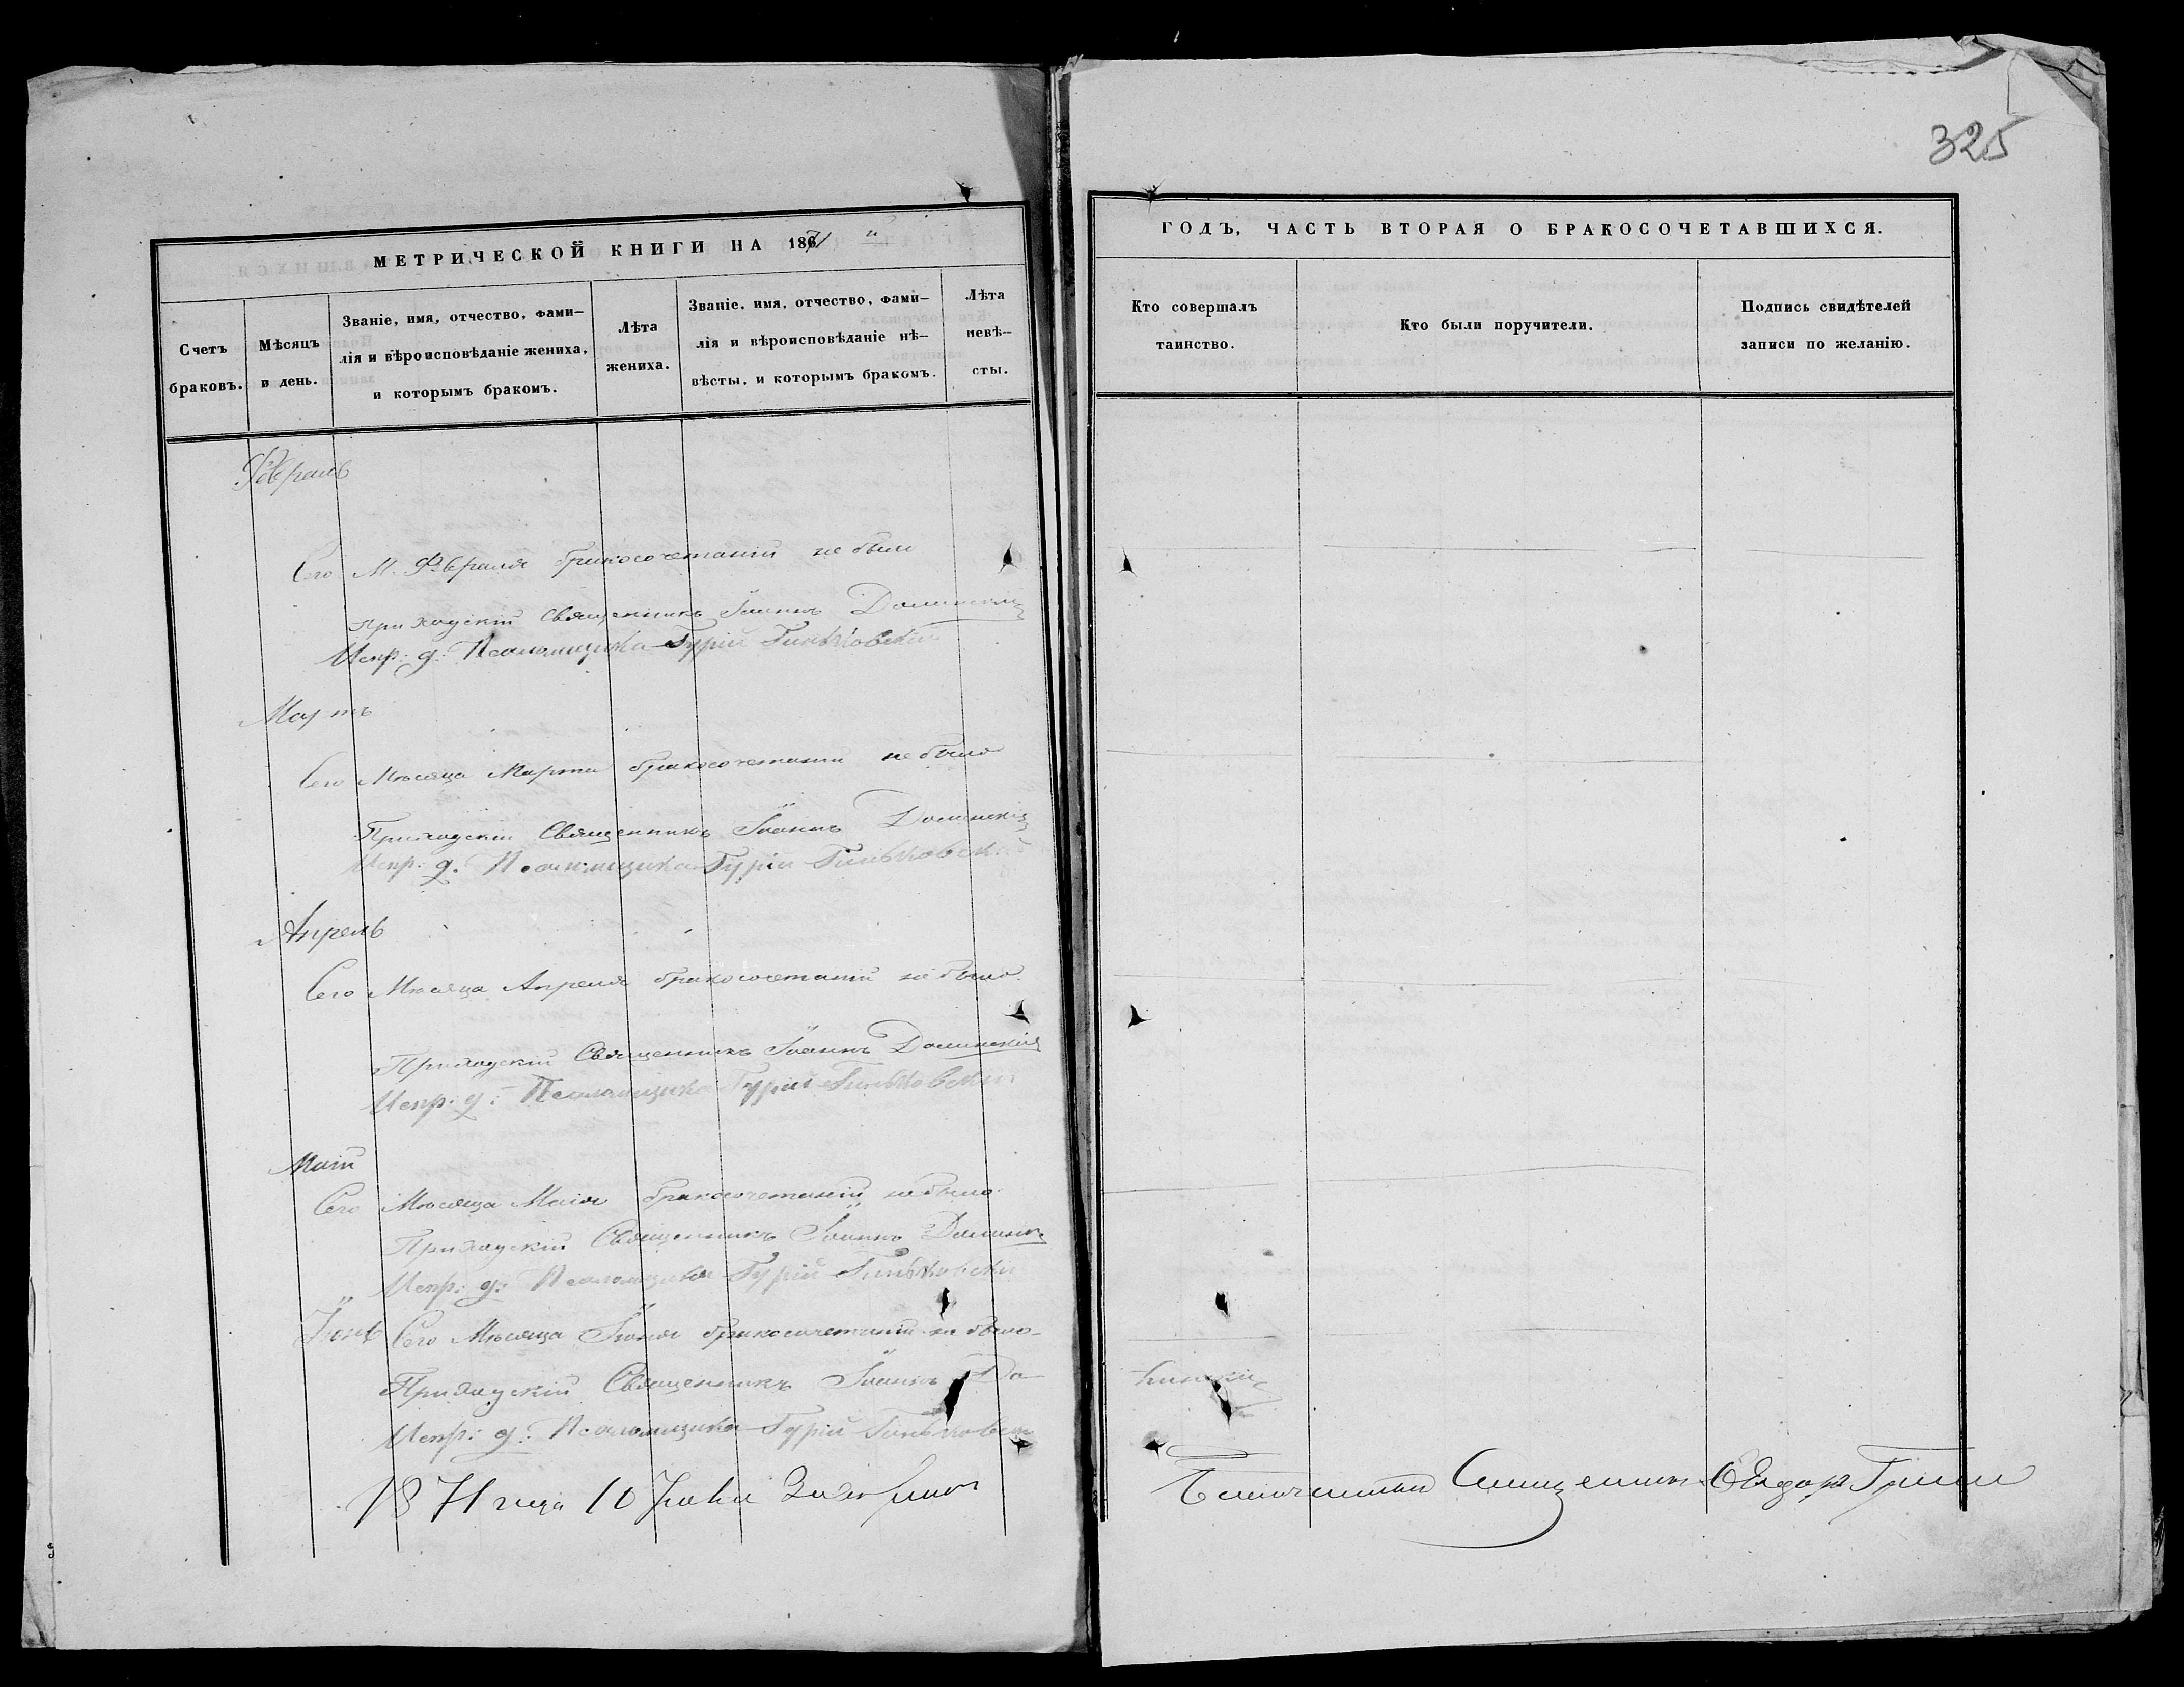 325
МЕТРИЧЕСКОЙ КНИГИ НА 1871 й
Счетъ браковъ.
Мѣсяцъ и день.
Званіе, имя, отчество, фами-
лія и вѣроисповѣданіе жениха,
и которымъ бракомъ.
Лѣта жениха.
Званіе, имя, отчество, фами-
лія и вѣроисповѣданіе нѣ-
вѣсты, и которымъ бракомъ.
Лѣта невѣ-
сты.
Февраль
Сего М. Февраля бракосочетаній не было
Приходскій Священникъ Іоаннъ Долинскій
Испр: д: Псаломщика Гурій Гиньковскій
Мартъ
Сего Мѣсяца Марта бракосочетаній не было
Приходскій Священникъ Іоаннъ Долинскій
Испр: д: Псаломщика Гурій Гиньковскій
Апрель
Сего Мѣсяца Апреля бракосочетаній не было
Приходскій Священникъ Іоаннъ Долинскій
Испр: д: Псаломщика Гурій Гиньковскій
Маій
Сего Мѣсяца Маія бракосочетаній не было
Приходскій Священникъ Іоаннъ Долинск
Испр: д: Псаломщика Гурій Гиньковскій
Іюнь Сего Мѣсяца Іюня бракосочетаній не было
Приходскій Священникъ Іоаннъ До
Испр: д: Псаломщика Гурій Гиньковск
1871 года 10 Іюля
ГОДЪ, ЧАСТЬ ВТОРАЯ О БРАКОСОЧЕТАВШИХСЯ.
Кто совершалъ
таинство.
Кто были поручители.
Подпись свидѣтелей
записи по желанію.
линскій
Благочинный Священникъ